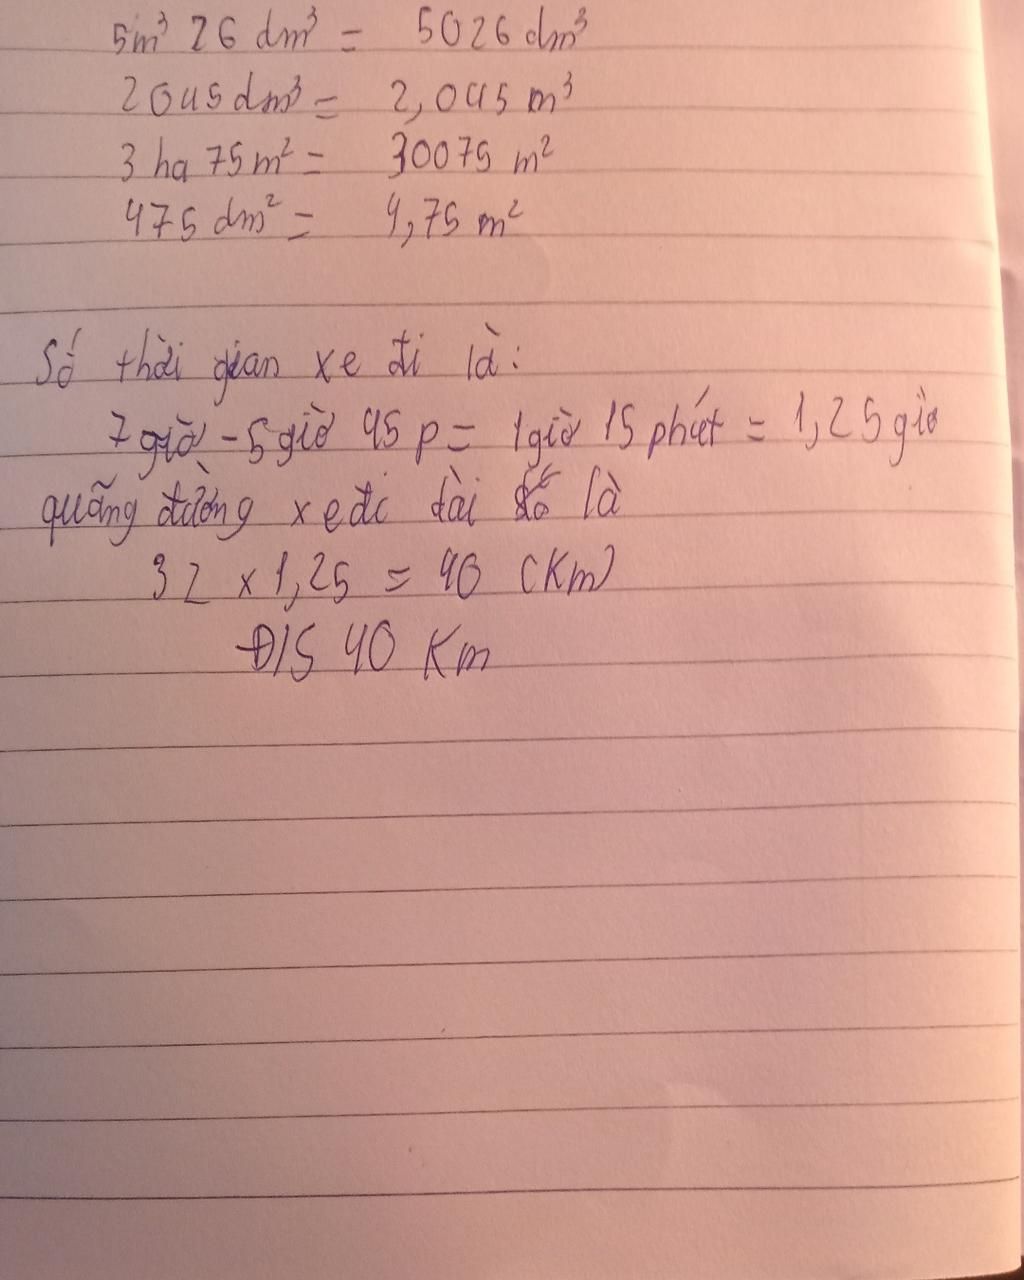 5m³ 26 dm³ = 5026 dm³
2045 dm³ = 2,045 m³
3 ha 75 m² = 30075 m²
475 dm² = 4,75 m²
Số thời gian xe đi là:
7 giờ - 5 giờ 45 p = 1 giờ 15 phút = 1,25 giờ
quãng đường xe đi dài là
32 x 1,25 = 40 (Km)
Đ/S 40 Km